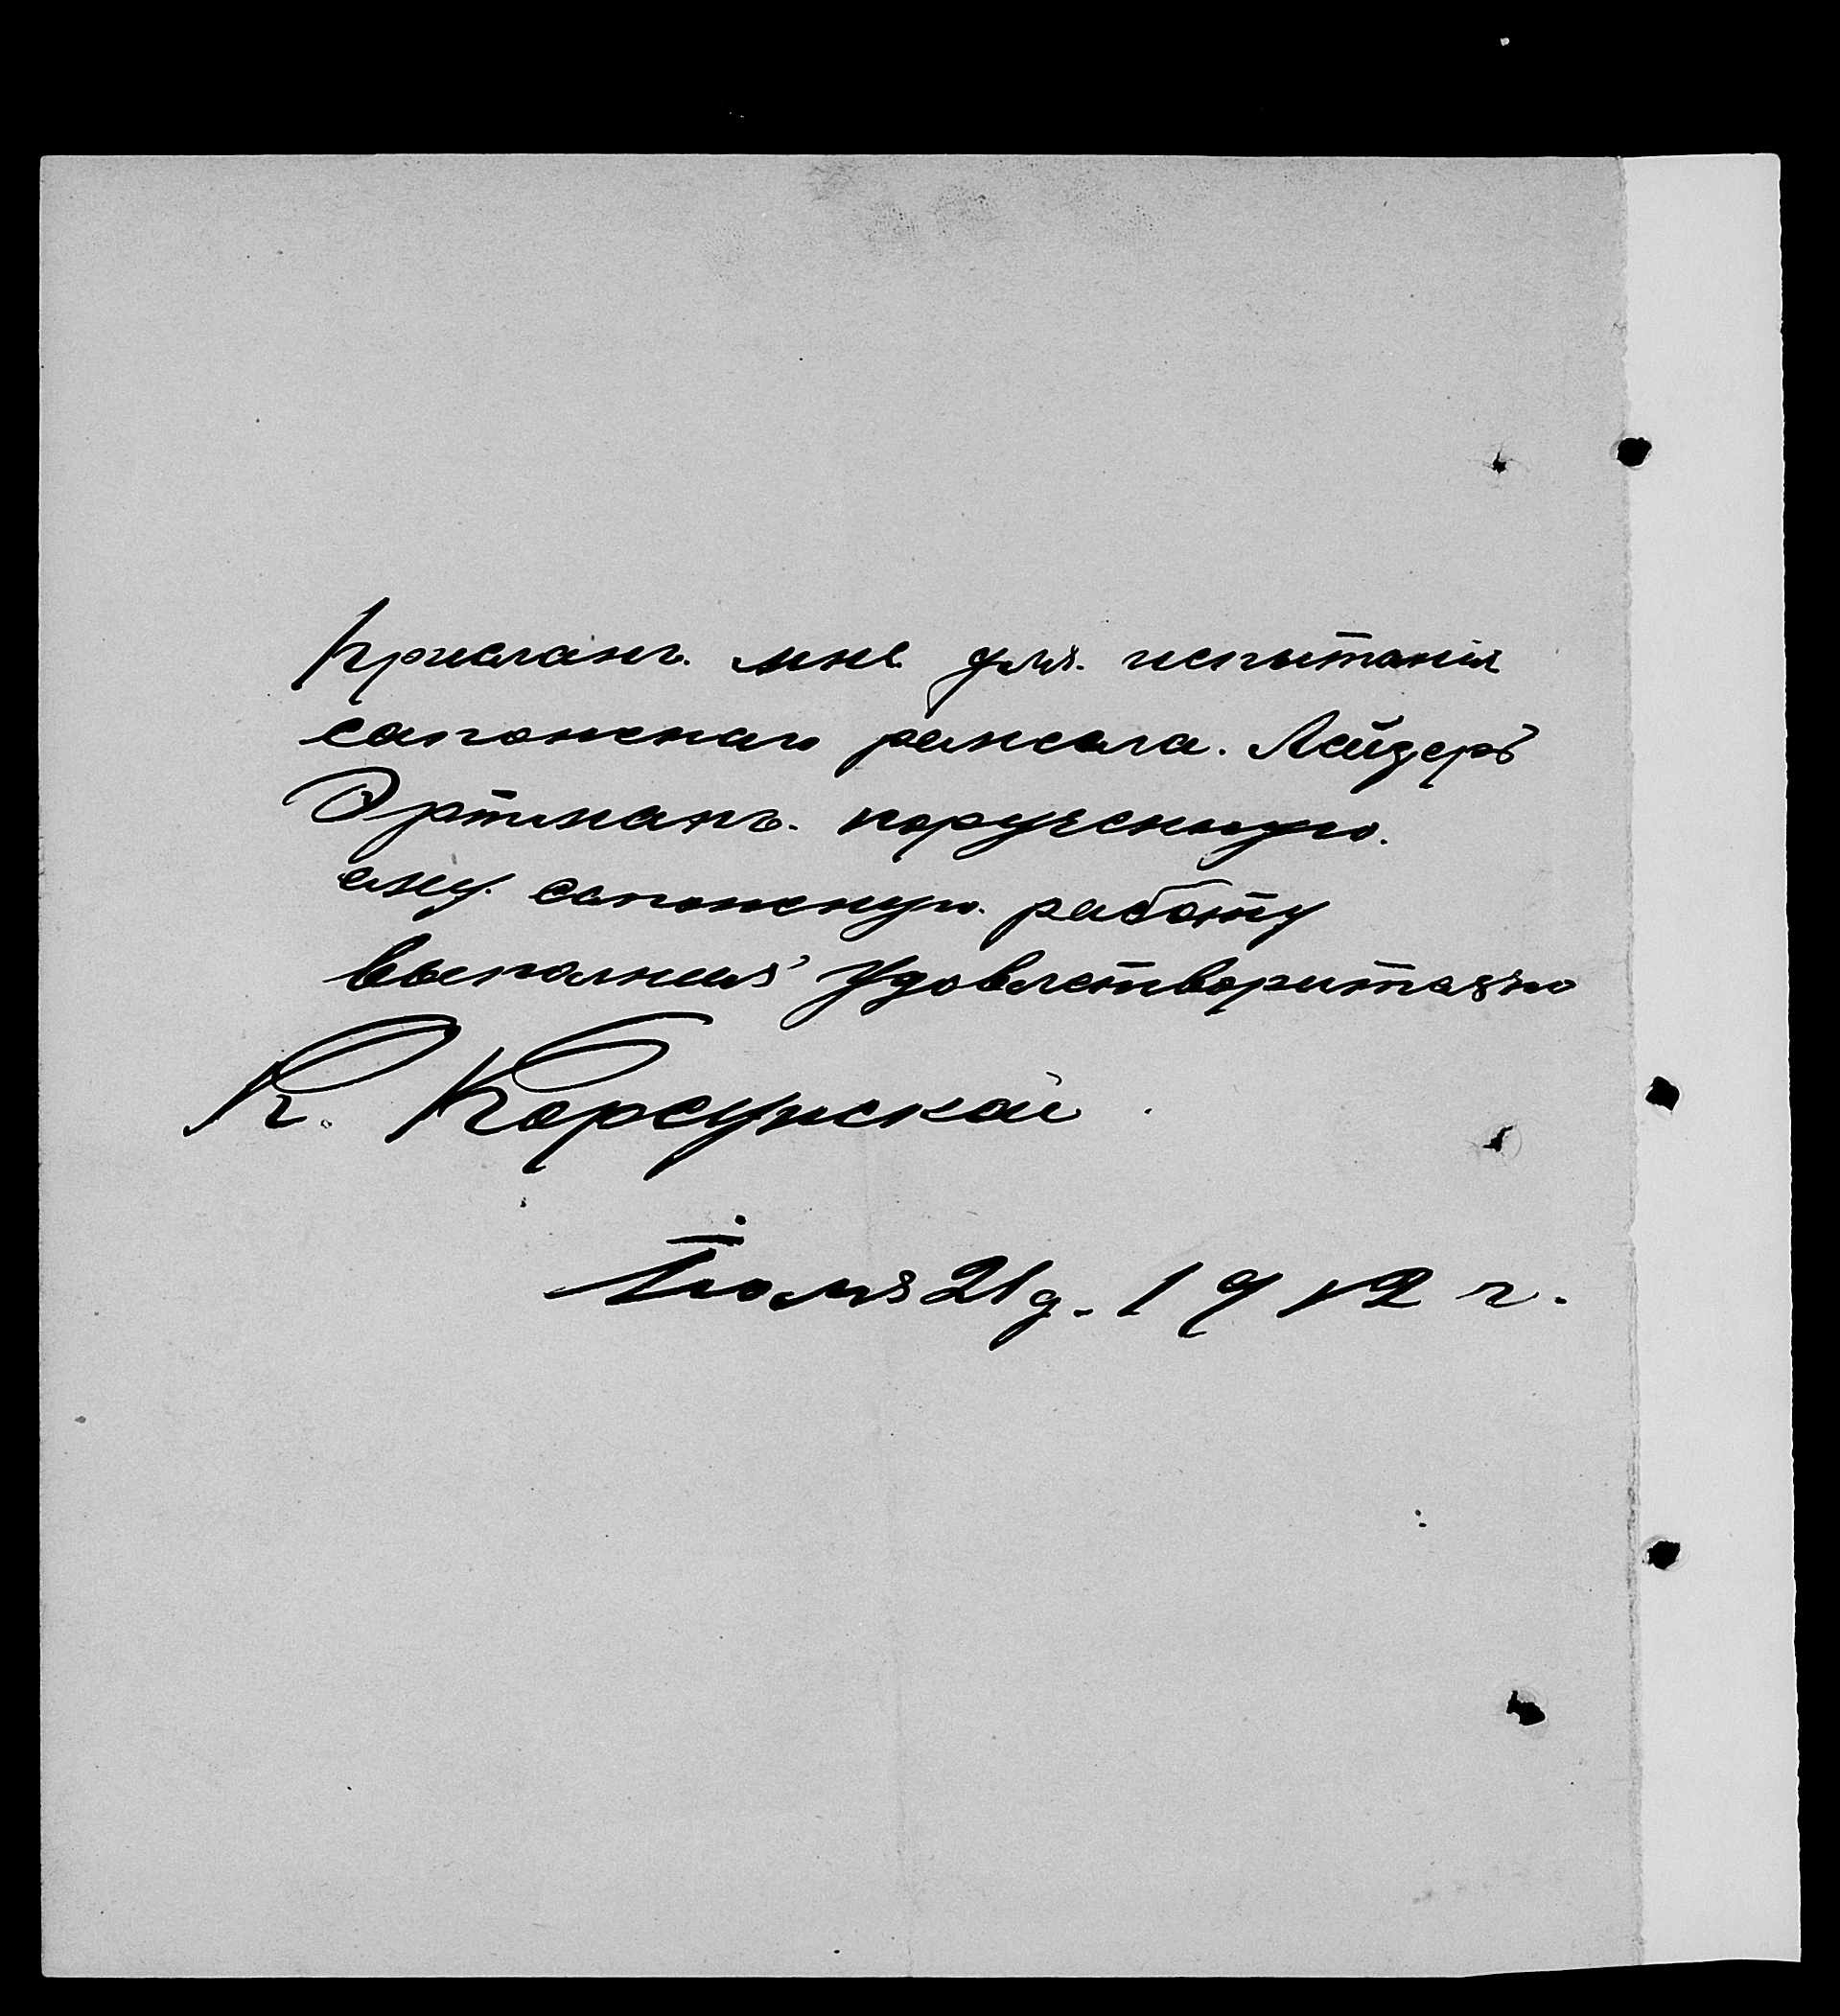 Присланъ мне для испытанія
сапожнаго ремесла. Лейзеръ
Эртманъ. порученную.
ему сапожную. работу
выполнилъ удовлетворительно
К. Корсунской
Іюля 21 д. 1912 г.